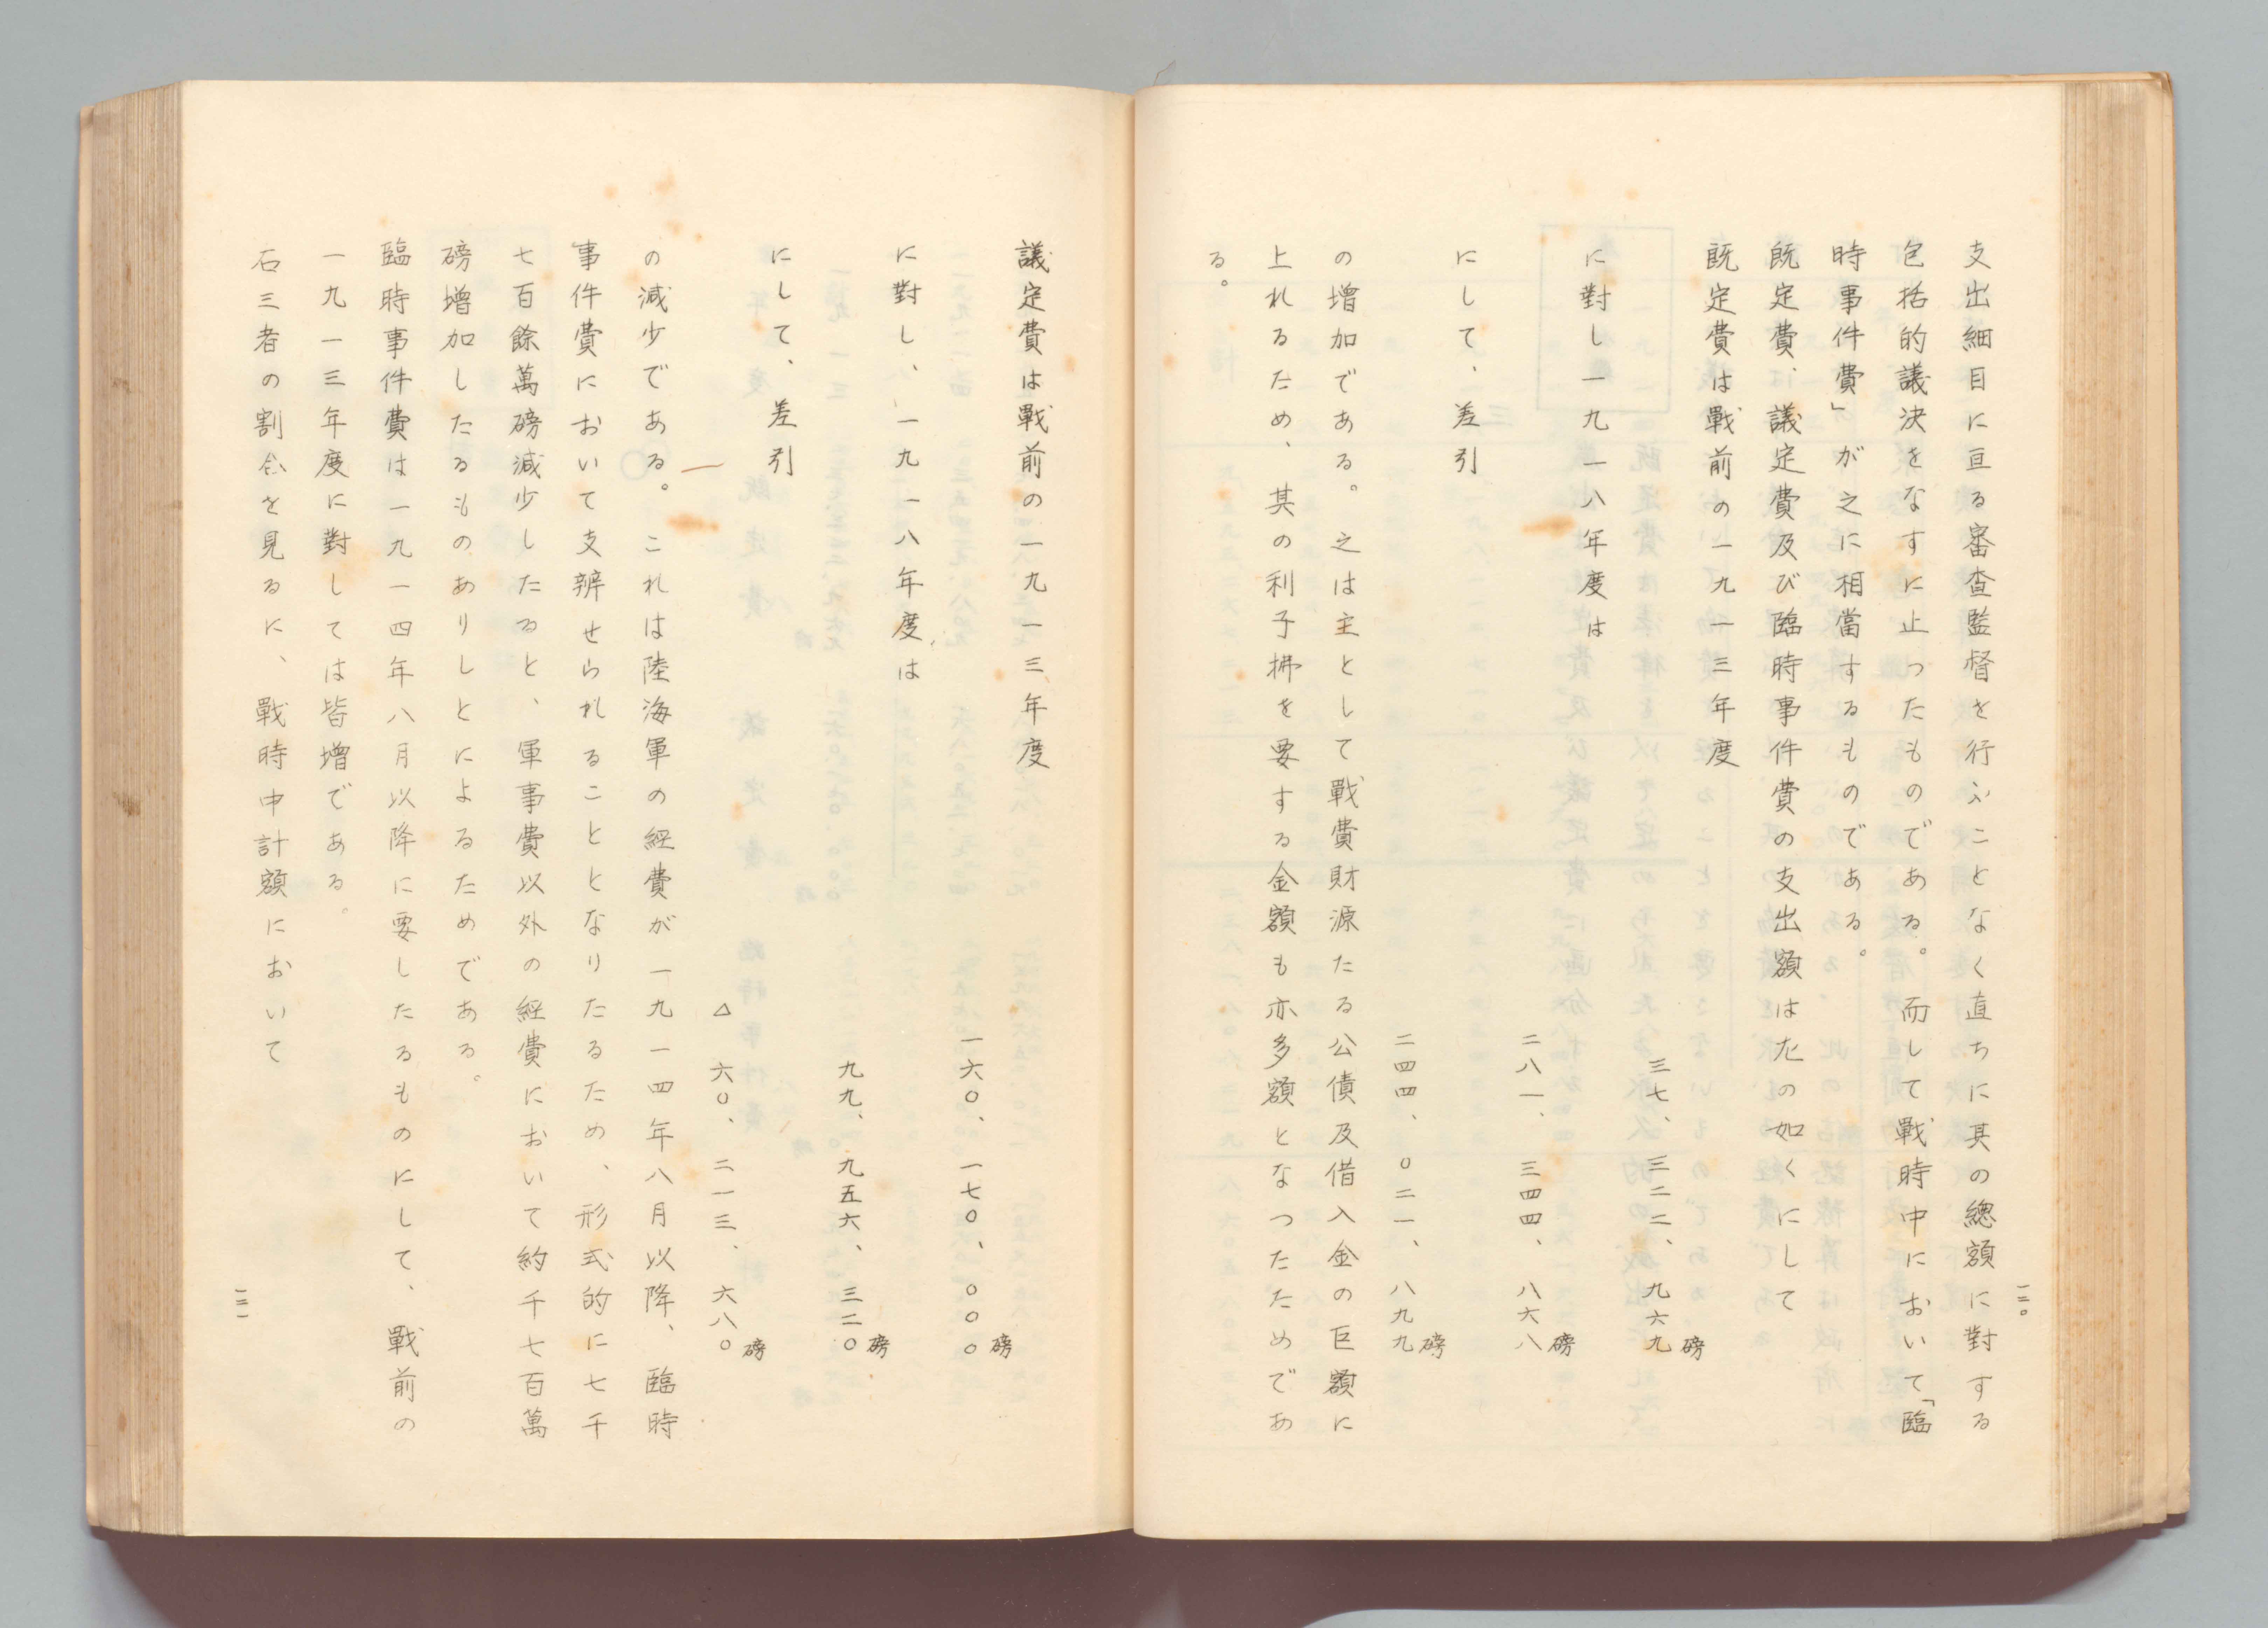 一二〇
支出細目に亘る審査監督を行ふことなく直ちに其の總額に對する
包括的議決をなすに止つたものである。而して戰時中において「臨
時事件費」が之に相當するものである。
既定費、議定費及び臨時事件費の支出額は左の如くにして
既定費は戰前の一九一三年度
三七、三二二、九六九磅
に對し一九一八年度は
二八一、三四四、八六八磅
にして、差引
二四四、〇二一、八九九磅
の増加である。之は主として戰費財源たる公債及借入金の巨額に
上れるため、其の利子拂を要する金額も亦多額となつたためであ
る。
議定費は戰前の一九一三年度
一六〇、一七〇、〇〇〇磅
に對し、一九一八年度は
九九、九五六、三二〇磅
にして、差引
△六〇、二一三、六八〇磅
の減少である。これは陸海軍の経費が一九一四年八月以降、臨時
事件費において支辨せられることとなりたるため、形式的に七千
七百餘萬磅減少したると、軍事費以外の経費において約千七百萬
磅増加したるものありしとによるためである。
臨時事件費は一九一四年八月以降に要したるものにして、戰前の
一九一三年度に對しては皆増である。
右三者の割合を見るに、戰時中計額において
一二一